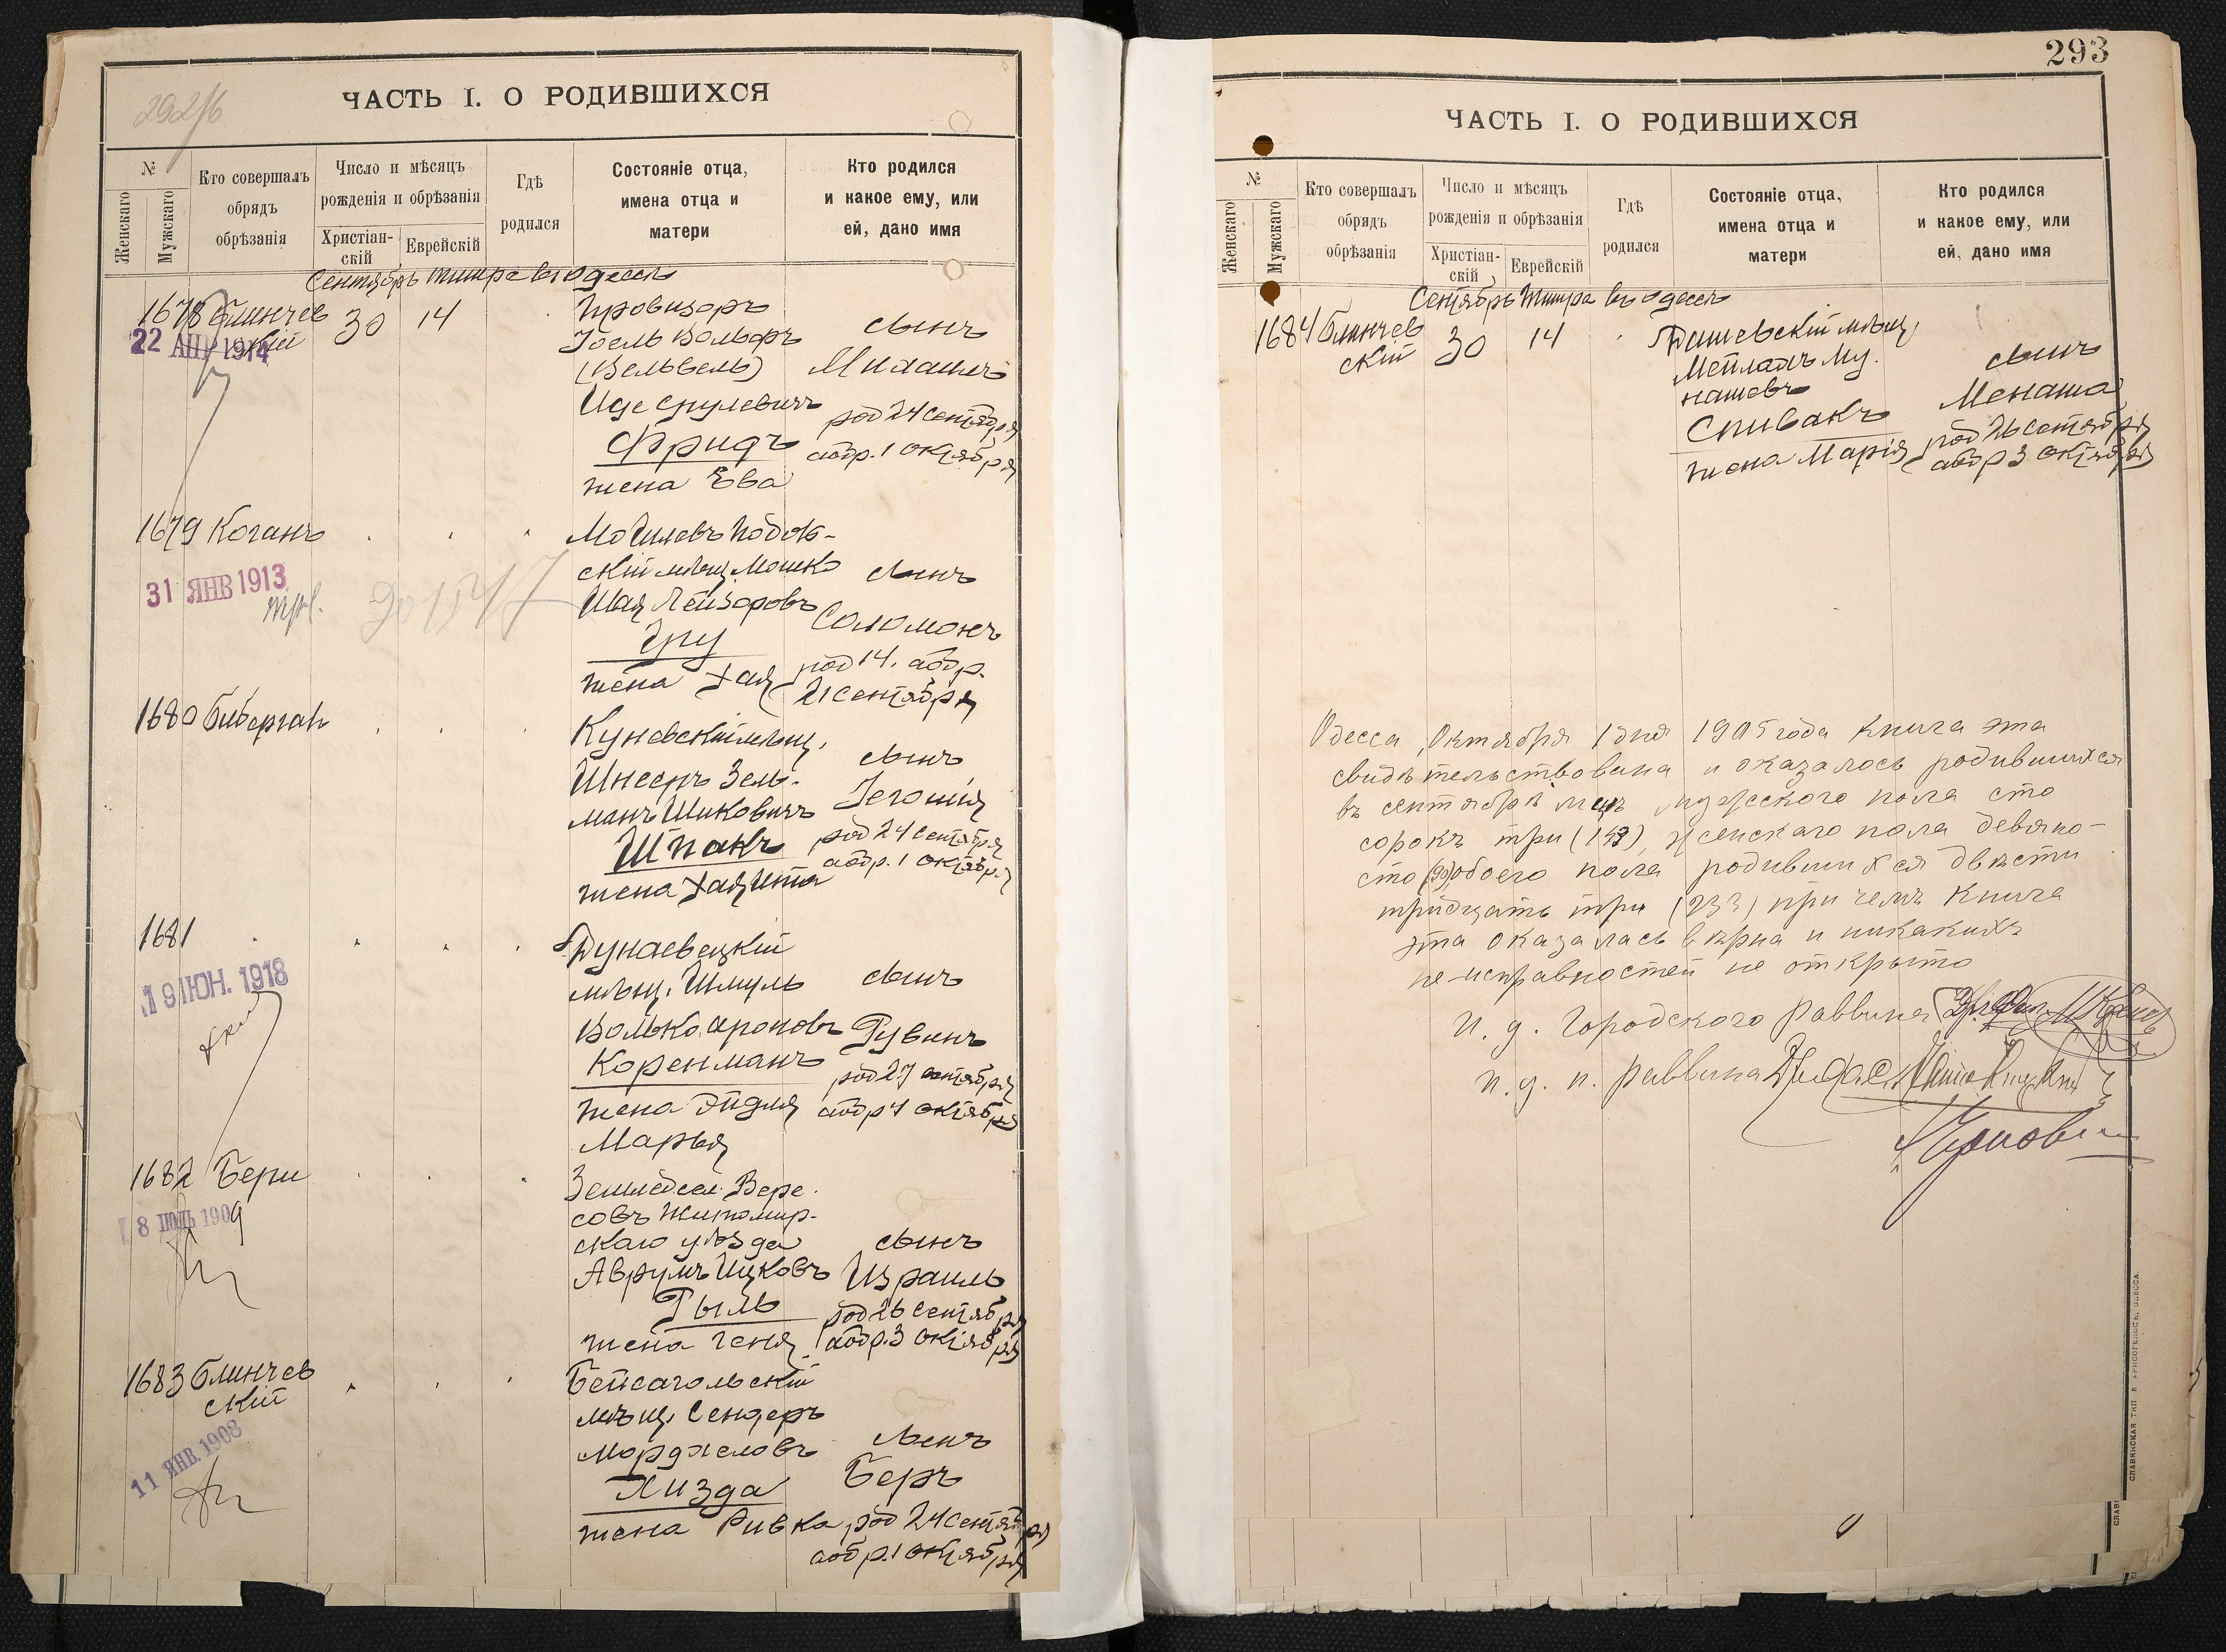 292/б
ЧАСТЬ I. О РОДИВШИХСЯ
№
Женскаго
Мужскаго
Кто совершалъ
обрядъ
обрѣзанія
Число и мѣсяцъ
рожденія и обрѣзанія
Христіан-
скій
Еврейскій
Гдѣ
родился
Состояніе отца,
имена отца и
матери
Кто родился
и какое ему, или
ей, дано имя
Сентябрь Тишре въ Одессѣ
1678 Блинчев
скій
30
14
22 АПР 1914
Провизоръ
Іоель Вольфъ
(Вельвель)
Иде Срулевичъ
Фридъ
жена Ева
сынъ
Михаилъ
род 24 сентября
обр. 1 октября
1679 Коганъ
31 ЯНВ 1913
Могилевъ Подол-
скій мѣщ. Мошко
Шая Лейзоровъ
Гру
жена Хая
сынъ
Соломонъ
род 14. обр.
21 сентября
1680 Биберган
Куневскій мѣщ.
Шнееръ Зель-
манъ Шиковичъ
Шпакъ
жена Хая Ита
сынъ
Іегошія
род 24 сентября
обр. 1 октября
1681
19 ІЮН. 1918
Дунаевецкій
мѣщ. Шмуль
Волько Ароновъ
Коренманъ
жена Эйдля
Марья
сынъ
Рувинъ
род 27 сентября
обр 4 октября
1682 Бери
8 ІЮЛЬ 1909
Земледѣл. Вере-
совъ Житомир-
скаго уѣзда
Аврумъ Ицковъ
Гыль
жена Геня
сынъ
Израиль
род 26 сентября
обр. 3 октября
1683 Блинчев
скій
11 ЯНВ. 1908
Бейсагольскій
мѣщ. Сендеръ
Мордхеловъ
Лизда
жена Ривка
сынъ
Беръ
род 24 сентября
обр. 1 октября
293
ЧАСТЬ I. О РОДИВШИХСЯ
№
Женскаго
Мужскаго
Кто совершалъ
обрядъ
обрѣзанія
Число и мѣсяцъ
рожденія и обрѣзанія
Христіан-
скій
Еврейскій
Гдѣ
родился
Состояніе отца,
имена отца и
матери
Кто родился
и какое ему, или
ей, дано имя
Сентябрь Тишра въ Одессѣ
1684 Блинчев
скій
30
14
Дашевскій мѣщ.
Мейлахъ Му-
нашевъ
Спивакъ
жена Марія
сынъ
Менаша
род 26 сентября
обр 3 октября
Одесса, Октября 1 дня 1905 года книга эта
свидѣтельствована и оказалось родившихся
въ сентябрѣ мцѣ мужескаго пола сто
сорокъ три (143), женскаго пола девяно-
сто (90) обоего пола родившихся двѣсти
тридцать три (233) при чемъ книга
эта оказалась вѣрна и никакихъ
неисправностей не открыто
И. д. Городского раввина
И. д. п. раввина
СЛАВЯНСКАЯ ТИП. Е. ХРИСОГЕЛОСЪ, ОДЕССА.